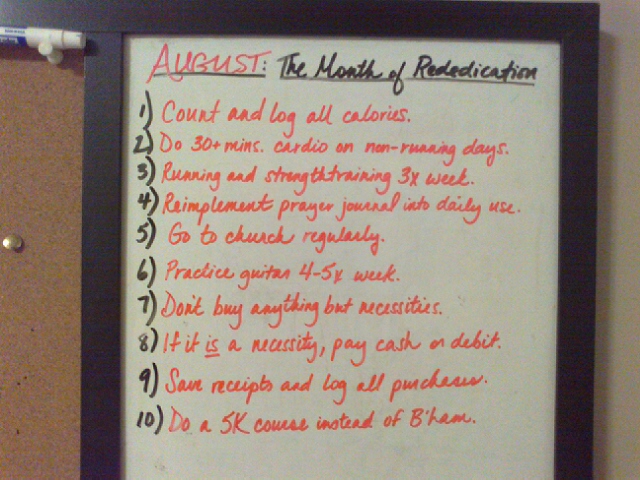 AUGUST: The Month of Rededication
1) Count and log all calories.
2) Do 30+ mins. cardio on non-running days.
3) Running and strengthtraining 3x week.
4) Reimplement prayer journal into daily use.
5) Go to church regularly.
6) Practice guitar 4-5x week.
7) Don't buy anything but necessities.
8) If it is a necessity, pay cash or debit.
9) Save receipts and log all purchases.
10) Do a 5K course instead of B'ham.